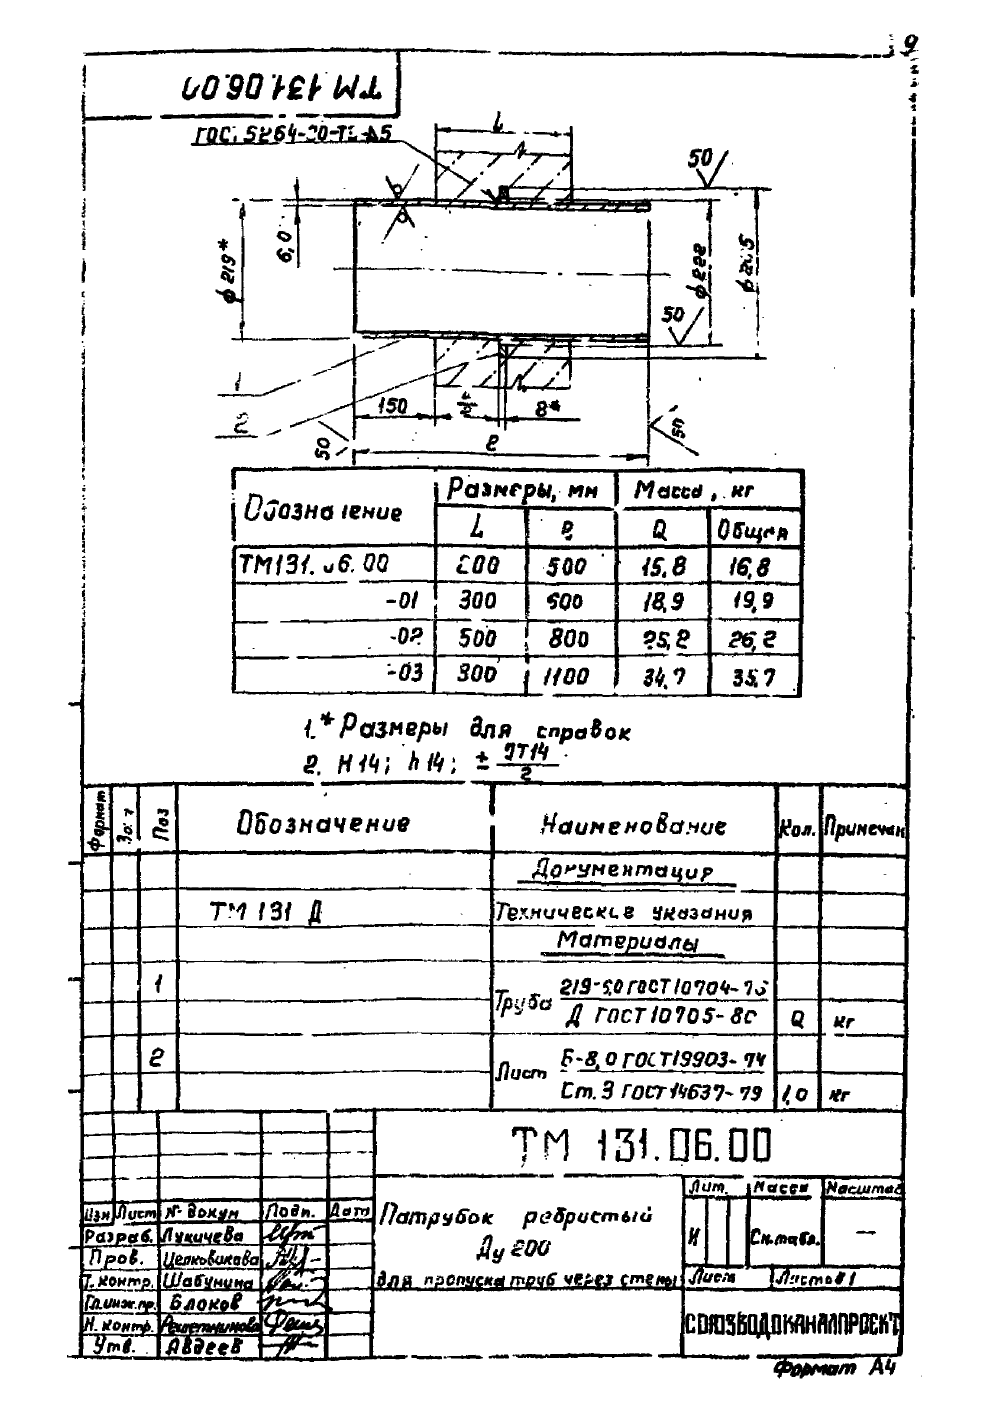 9
ТМ 131.06.00
L
50
6,0
ф 219*
ф 222
50
1
2
150
8*
50
50
ℓ
Обозначение
Размеры, мм
Масса, кг
L
ℓ
Q
Общая
ТМ131.06.00
500
15,8
16,8
-01
300
600
18,9
19,9
-02
500
800
25,2
26,2
-03
1100
34,7
35,7
1.* Размеры для справок
2. H14; h14; ± IT14/2
Формат
Поз
Обозначение
Наименование
Кол.
Примечан
Документация
ТМ 131 Д
Технические указания
Материалы
1
Труба
ГОСТ 10704-76
Д ГОСТ 10705-80
Q
кг
2
Лист
Б-8,0 ГОСТ 19903-74
Ст. 3 ГОСТ 14637-79
1,0
кг
ТМ 131.06.00
Изм Лист № докум Подп. Дата
Разраб. Лукичева
Пров. Целковикова
Т. контр. Шабунина
Гл.инж.пр. Блоков
Н. контр.
Утв. Авдеев
Патрубок ребристый
Ду 200
для пропуска труб через стены
Лит.
Масса
Масштаб
И
См.табл.
—
Лист
Листов 1
СОЮЗВОДОКАНАЛПРОЕКТ
Формат А4